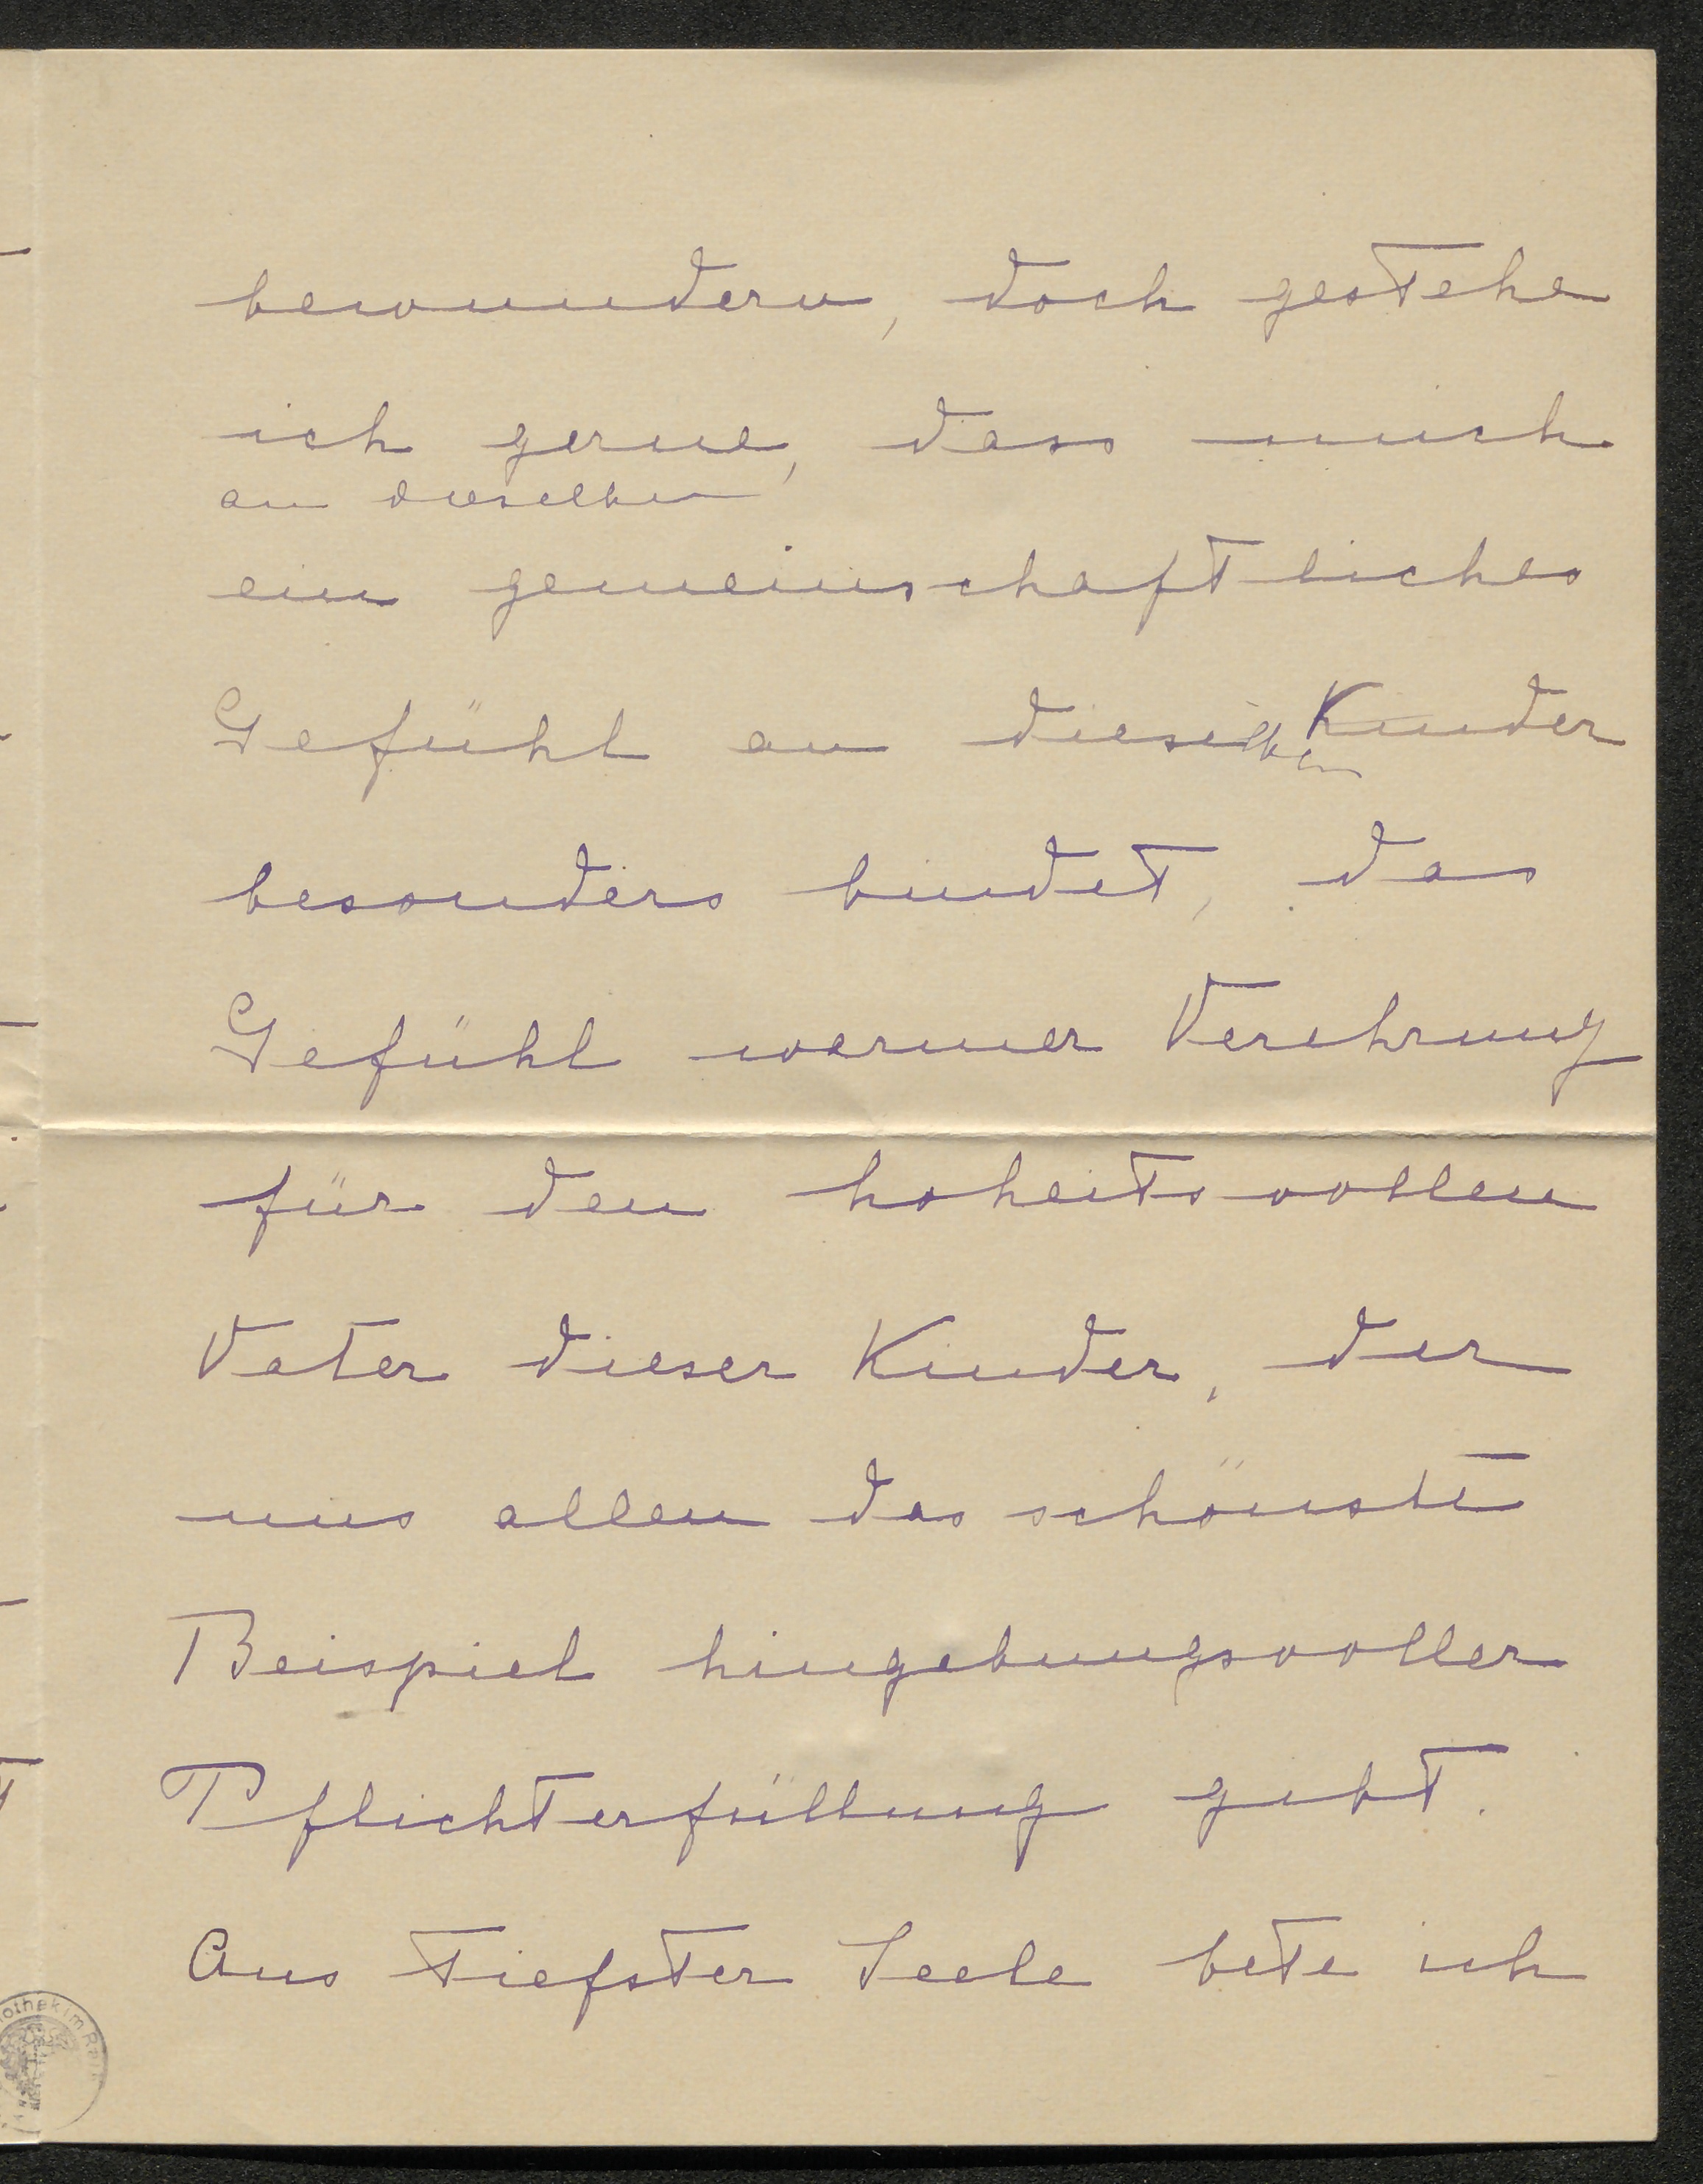 bewundern, doch gestehe
ich gerne, dass mich
an dieselben
ein gemeinschaftliches
Gefühl an dieselben Kinder
besonders bindet, das
Gefühl warmer Verehrung
für den hoheitsvollen
Vater dieser Kinder, der
uns allen das schönste
Beispiel hingebungsvoller
Pflichterfüllung gibt.
Aus tiefster Seele bete ich
othek im Rat